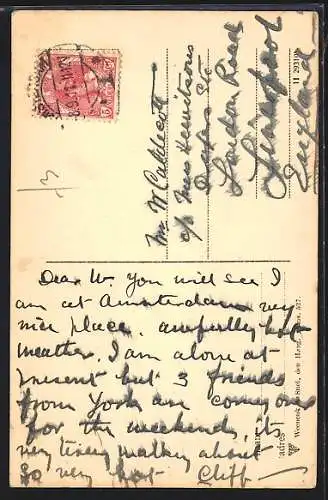 Mr W Caldecott
c/o Mess Hewitsons
Drapers etc
London Road
Liverpool
England
11 29310
Dear W. You will see I
am at Amsterdam very
nice place, awfully hot
weather, I am alone at
present but 3 friends
from York are coming
for the weekend, its
very tiring walking about
so very hot
Cliff
Weenenk & Snel, den Haag
adres